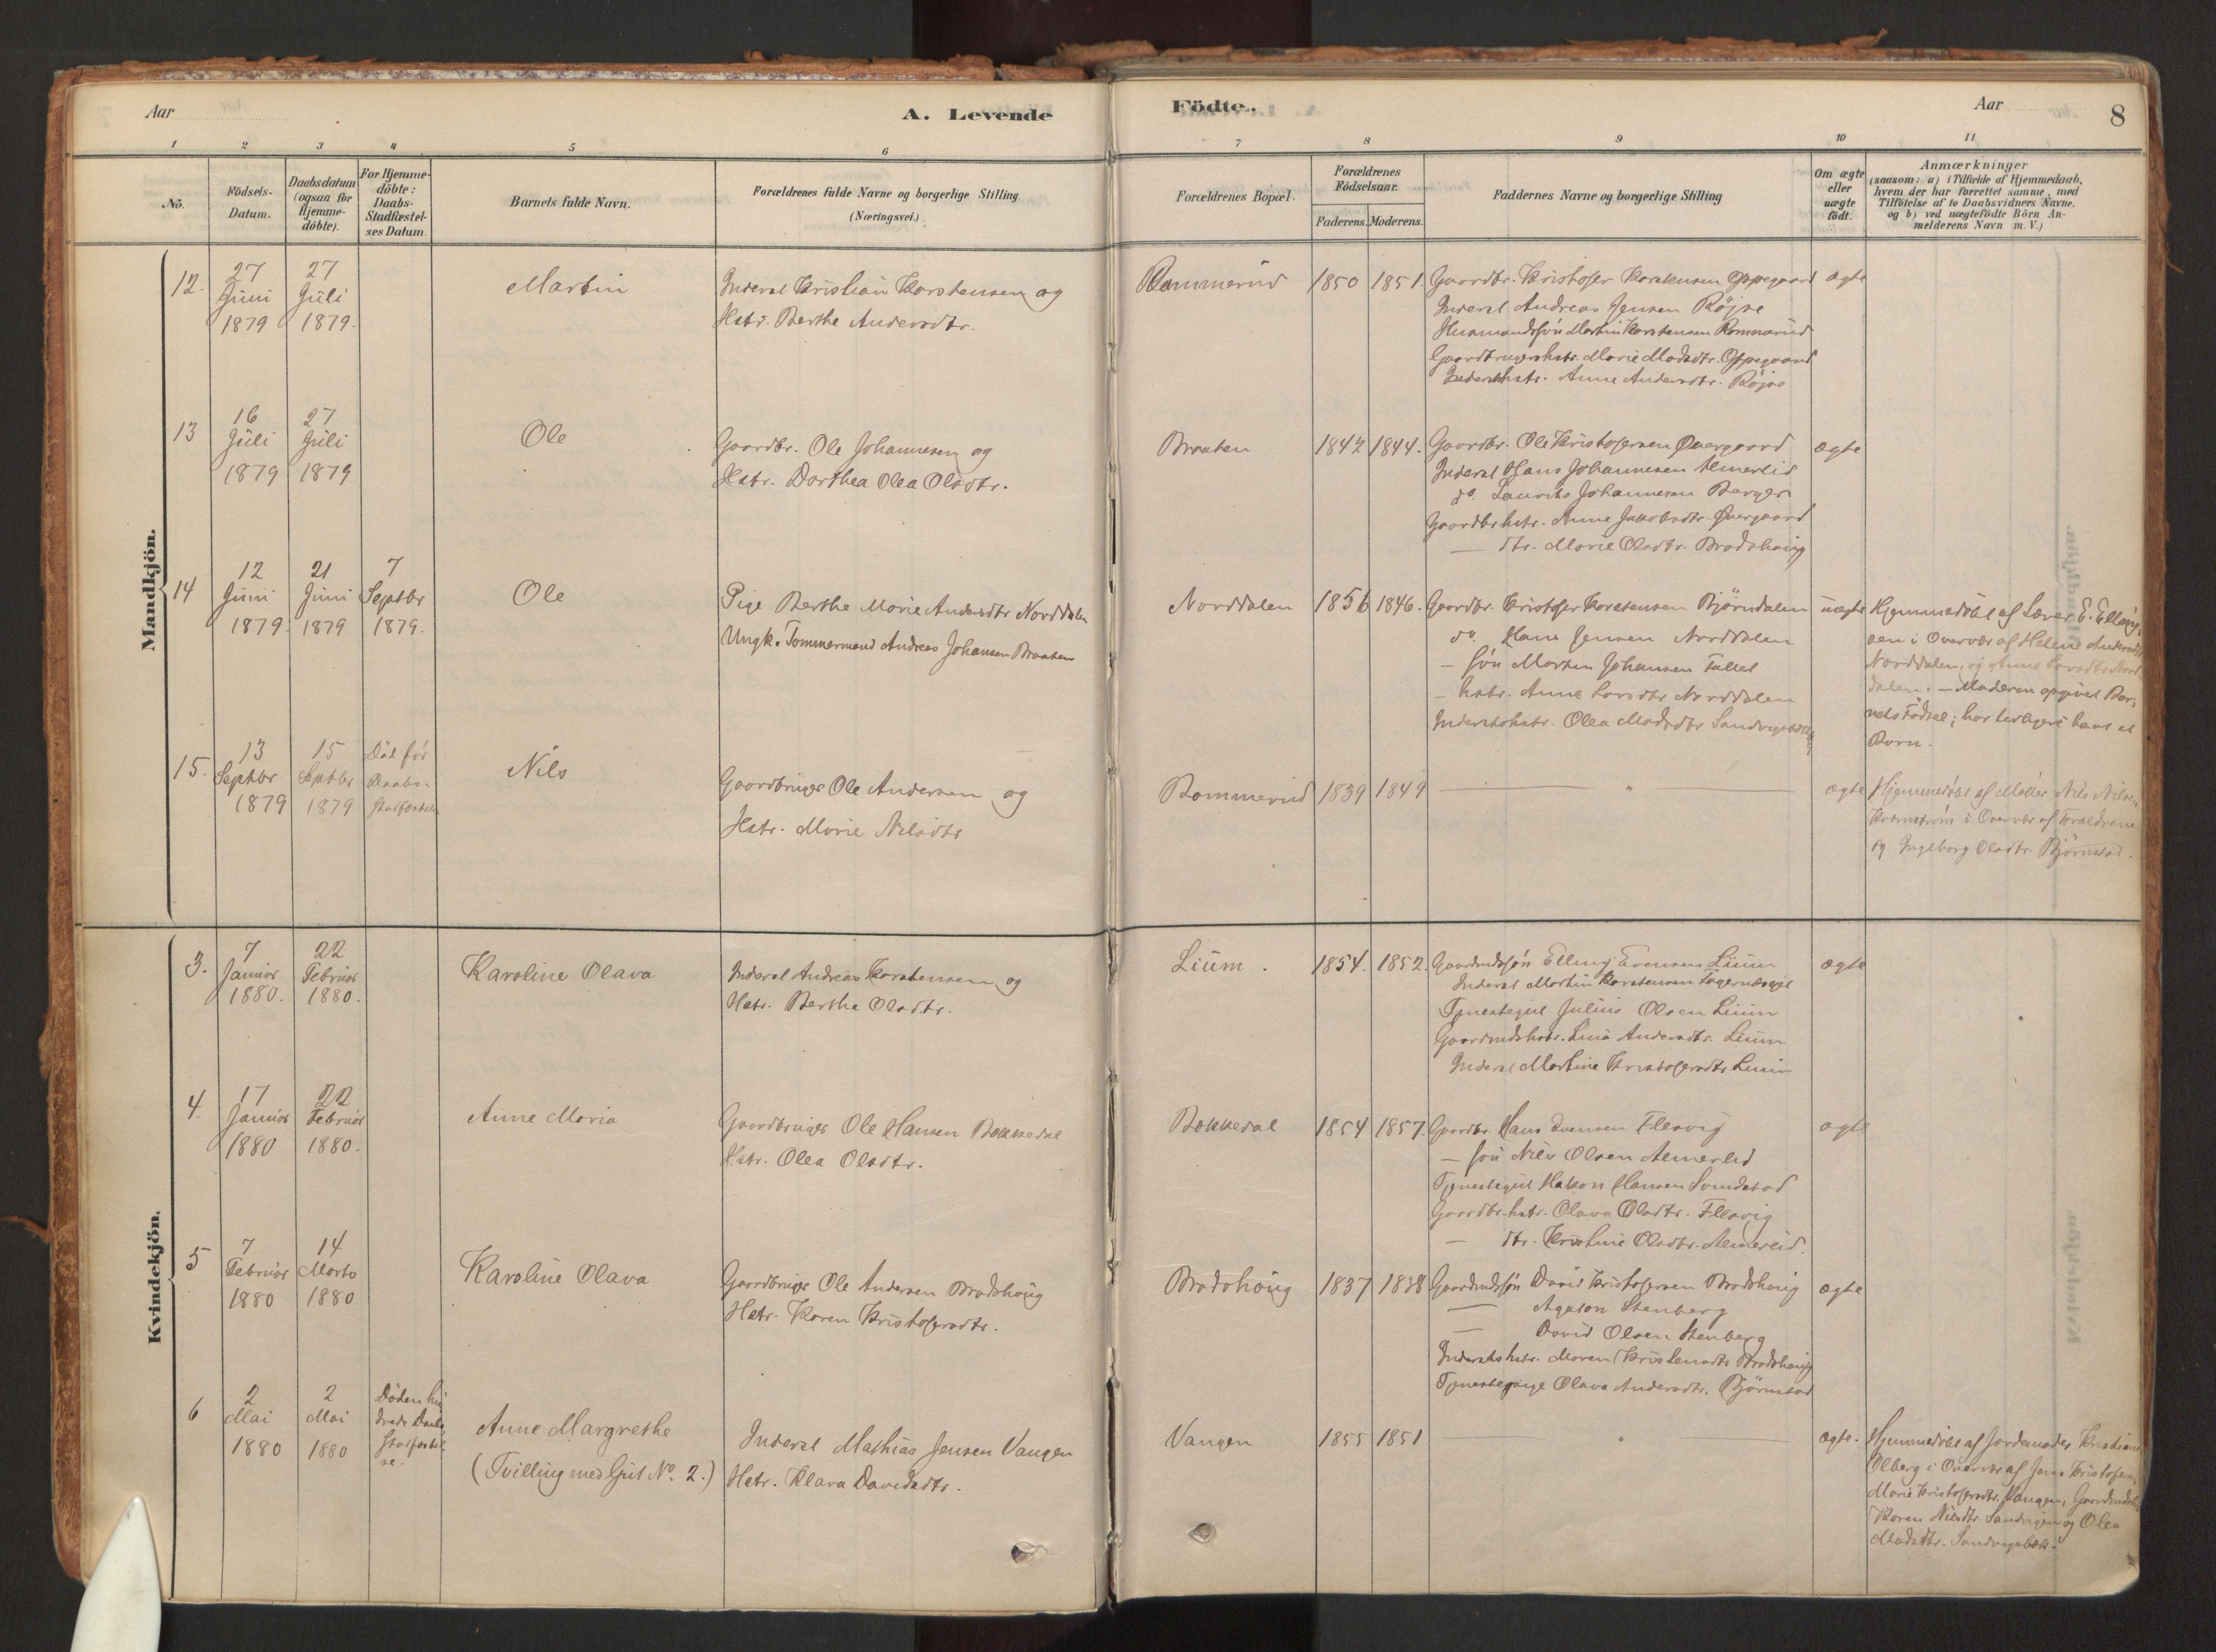 Aar
A. Levende
Födte.
Aar
8
1
2
3
4
5
6
7
8
9
10
11
No.
Födsels-
Datum.
Daabsdatum
(ogsaa for
Hjemme-
döbte).
For Hjemme-
döbte:
Daabs-
Stadfæstel-
ses Datum.
Barnets fulde Navn.
Forældrenes fulde Navne og borgerlige Stilling
(Næringsvei.)
Forældrenes Bopæl.
Forældrenes
Födselsaar.
Faderens.
Moderens.
Faddernes Navne og borgerlige Stilling
Om ægte
eller
uægte
födt.
Anmærkninger
(saasom: a) i Tilfælde af Hjemmedaab,
hvem der har forrettet samme, med
Tilföielse af to Daabsvidners Navne.
og b) ved uægtefödte Börn An-
melderens Navn m. V.)
Mandkjön.
12.
27
Juni
1879
27
Juli
1879.
Martin
Inderst Kristian Karstensen og
Hstr. Berthe Andersdtr.
Rommerud
1850
1851.
Gaardbr. Kristofer Karstensen Oppegaard
Inderst Andreas Jensen Röjse
Husmandssön Martin Karstensen Rommerud
Gaardbrugerhstr. Marie Madsdtr. Oppegaard
Indersthstr. Anne Andersdtr. Röjse
ægte
13
16
Juli
1879
27
Juli
1879
Ole
Gaardbr. Ole Johannesen og
Hstr. Dorthea Olea Olsdtr.
Braaten
1842
1844.
Gaardbr. Ole Kristofersen Øvergaard
Inderst Hans Johannesen Almerlid
do. Laurits Johannesen Berger
Gaardbrhstr. Anne Jakobsdtr. Øvergaard
— dtr. Marie Olsdtr. Bradshaug
ægte
14
12
Juni
1879.
21
Juni
1879
7
Septbr
1879.
Ole
Pige Berthe Marie Andersdtr Norddalen
Ungk. Tømmermand Andreas Johansen Braaten
Norddalen
1856
1846.
Gaardbr. Kristofer Karstensen Bjørndalen
do. Hans Jensen Norddalen
— sön Morten Johansen Fallet
— hstr. Anne Larsdtr Norddalen
Indersthstr. Olea Madsdtr
uægte
Hjemmedöbt af Lærer E. Elling-
sen i Overvær af Helene Andersdtr
Norddalen, og Anne Larsdtr Nord-
dalen. — Moderen opgivet Bar-
nets Födsel; har tidligere havt et
Barn.
15.
13
Septbr
1879
15
Septbr
1879
Död för
Daabs-
Stadfæstels
Nils
Gaardbruger Ole Andersen og
Hstr. Marie Nilsdtr
Rommerud
1839
1849
— " —
ægte
Hjemmedöbt af Möller Nils Nilsen
i Overvær af Forældrene
og Ingeborg Olsdtr. Bjørnstad.
Kvindekjön.
3.
7
Januar
1880.
22
Februar
1880.
Karoline Olava
Inderst Andreas Karstensen og
Hstr. Berthe Olsdtr.
Lium.
1854.
1852.
Gaardmdssön Elling Evensen Lium
Inderst Martin Karstensen
Tjenestegut Julius Olsen Lium
Gaardmdshstr. Lina Andersdtr. Lium
Inderst Martine Kristofersdtr Lium
ægte
4.
17
Januar
1880
22
Februar
1880.
Anne Maria
Gaardbruger Ole Hansen Bekkedal
Hstr. Olea Olsdtr.
Bekkedal
1854
1857.
Gaardbr. Hans Evensen Flesvig
— sön Nils Olsen Almerlid
Tjenestegut Hakon Hansen Sundstad
Gaardbr.hstr. Olava Olsdtr. Flesvig
— dtr. Kristine Olsdtr. Almerlid.
ægte
5
7
Februar
1880
14
Marts
1880
Karoline Olava
Gaardbruger Ole Andersen Bradshaug
Hstr. Karen Kristofersdtr.
Bradshaug
1837
1838
Gaardmdssön David Kristofersen Bradshaug
— Aguson Stenberg
— David Olsen Stenberg
Indersthstr. Maren Kristensdtr Bradshaug
Tjenestepige Olava Andersdtr. Bjørnstad
ægte
6
2
Mai
1880
2
Mai
1880
Döden hin-
drede Daabs-
Stadfæstel
se.
Anne Margrethe
(Tvilling med Gut No. 2.)
Inderst Mathias Jensen Vangen
Hstr. Klara Davidsdtr.
Vangen
1855
1851
— " —
ægte.
Hjemmedöbt af Jordemoder Kristiane
Olberg i Overvær af Jens Kristofersen,
Marie Kristofersdtr. Vangen, Gaardmdshstr.
Karen Nilsdtr. Sandvigen og Olea
Madsdtr.